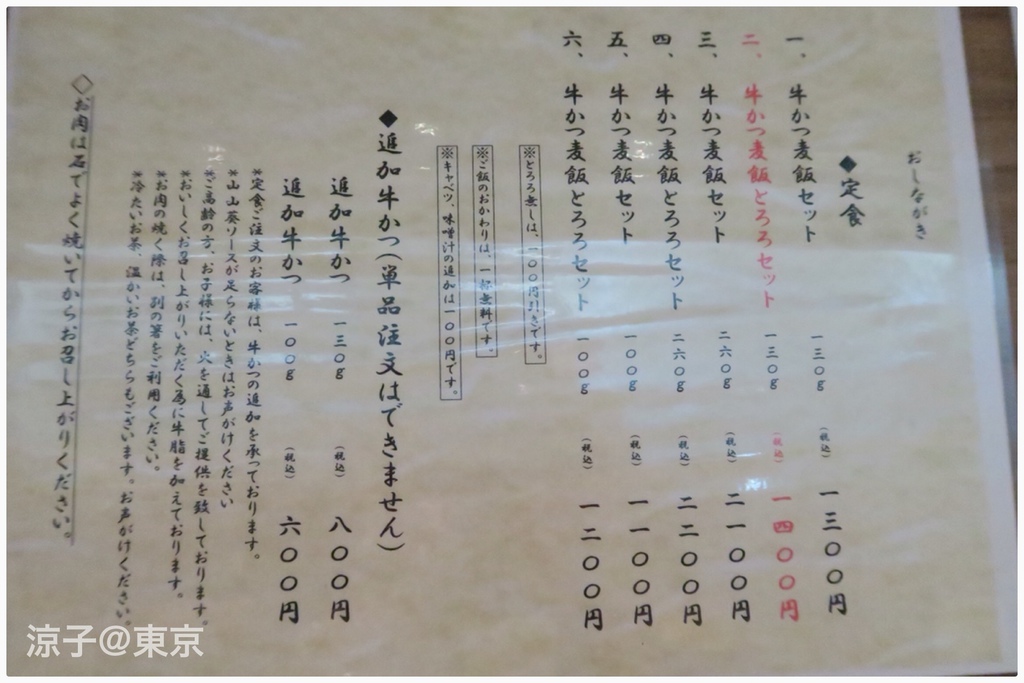 おしながき
◆定食
一、牛かつ麦飯セット 一三〇g (税込) 一三〇〇円
二、牛かつ麦飯とろろセット 一三〇g (税込) 一四〇〇円
三、牛かつ麦飯セット 二六〇g (税込) 二一〇〇円
四、牛かつ麦飯とろろセット 二六〇g (税込) 二二〇〇円
五、牛かつ麦飯セット 一〇〇g (税込) 一一〇〇円
六、牛かつ麦飯とろろセット 一〇〇g (税込) 一二〇〇円
※とろろ無しは、一〇〇円引きです。
※ご飯のおかわりは、一杯無料です。
※キャベツ、味噌汁の追加は一〇〇円です。
◆追加牛かつ(単品注文はできません)
追加牛かつ 一三〇g (税込) 八〇〇円
追加牛かつ 一〇〇g (税込) 六〇〇円
*定食ご注文のお客様は、牛かつの追加を承っております。
*山山葵ソースが足らないときはお声がけください
*ご高齢の方、お子様には、火を通してご提供を致しております。
*おいしくお召し上がりいただく為に牛脂を加えております。
*お肉の焼く際は、別の箸をご利用ください。
*冷たいお茶、温かいお茶どちらもございます。お声がけください。
◇お肉は石でよく焼いてからお召し上がりください。
涼子@東京